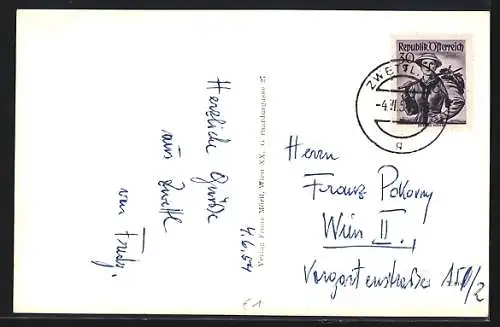 Republik Österreich
30
ZWETTL
Herzliche Grüße
aus Zwettl
von
4.6.54
Verlag Franz Mörtl, Wien XX.
Herrn
Franz Pokorny
Wien II.,
Vorgartenstraße
€1